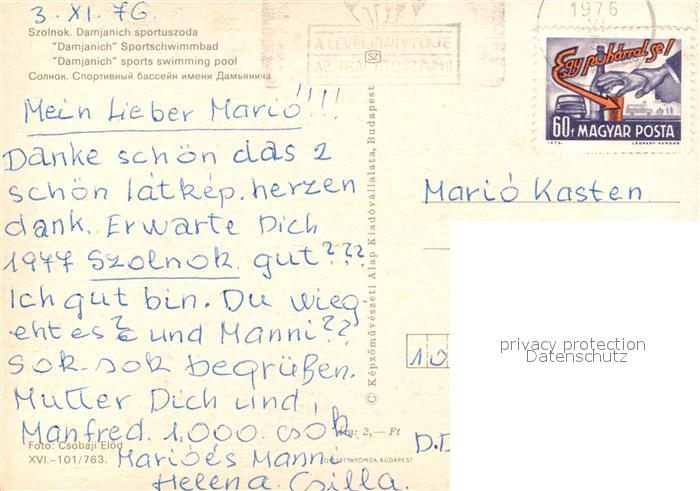 3. XI. 76.
Szolnok. Damjanich sportuszoda
"Damjanich" Sportschwimmbad
"Damjanich" sports swimming pool
Солнок. Спортивный бассейн имени Дамьянича
Mein Lieber Marió!!!
Danke schön das 2
schön látkép. herzen
dank. Erwarte Dich
1977 Szolnok. gut???
Ich gut bin. Du wieg-
eht es? und Manni??
Sok-sok begrüßen.
Mutter Dich und
Manfred. 1.000 csók
Foto: Csobaji Előd
XVI.-101/763.
Marió és Manni
Helena Csilla.
Ára: 2,— Ft
OFFSETNYOMDA BUDAPEST
© Képzőművészeti Alap Kiadóvállalata, Budapest
SZ
A LEVÉL IRÁNYÍTÓJE
AZ IRÁNYÍTÓSZÁM!
1976
Egy pohárral se!
60f MAGYAR POSTA
1973. LÉGRÁDY SÁNDOR
Marió Kasten
10
D.D
privacy protection
Datenschutz